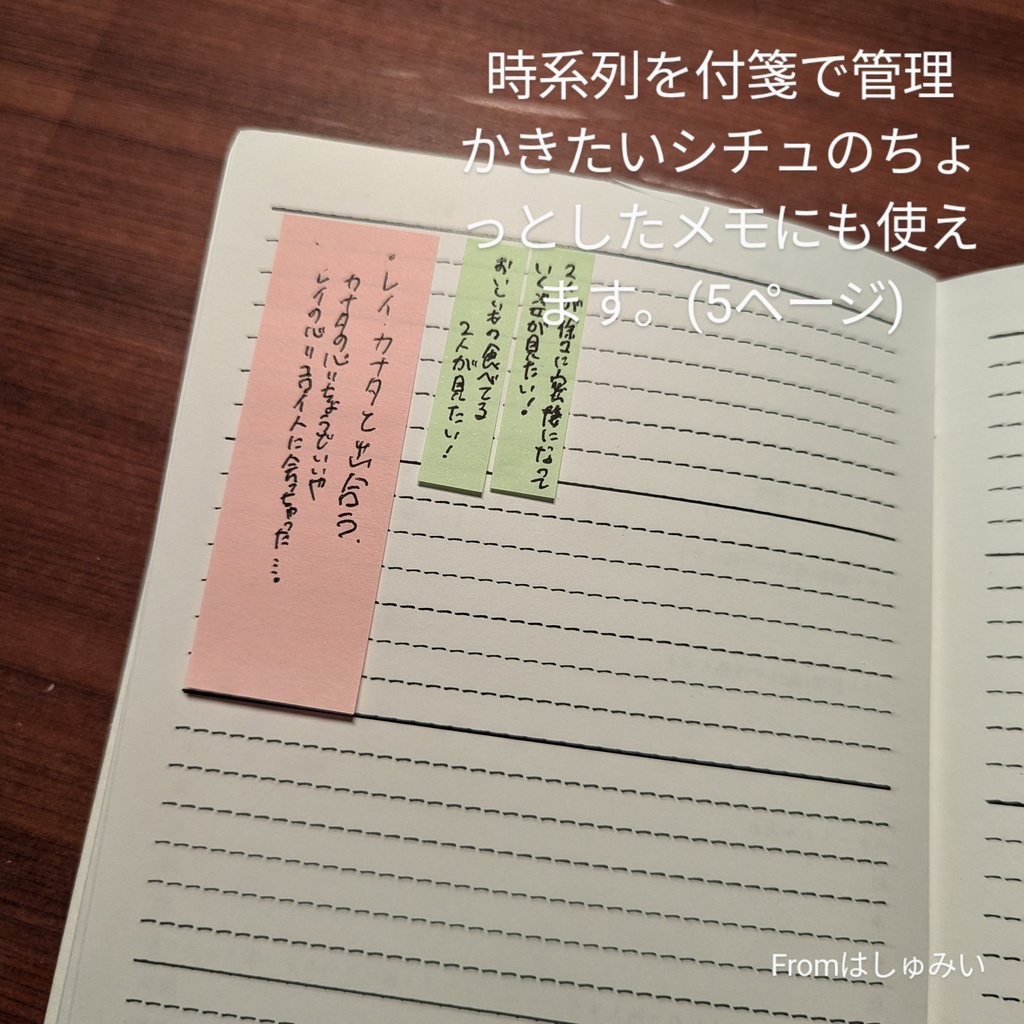 時系列を付箋で管理
かきたいシチュのちょ
っとしたメモにも使え
ます。(5ページ)
2人が徐々に密接になって
いく姿が見たい!
おいしいもの食べてる
2人が見たい!
・レイ、カナタと出合う、
カナタの心"ちょうどいいや
レイの心"ヨワイ人に会っちゃった…。
Fromはしゅみい